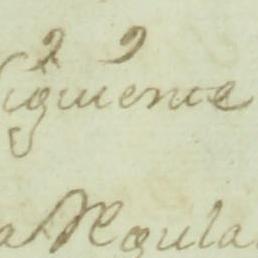 Siguiente
a Regula